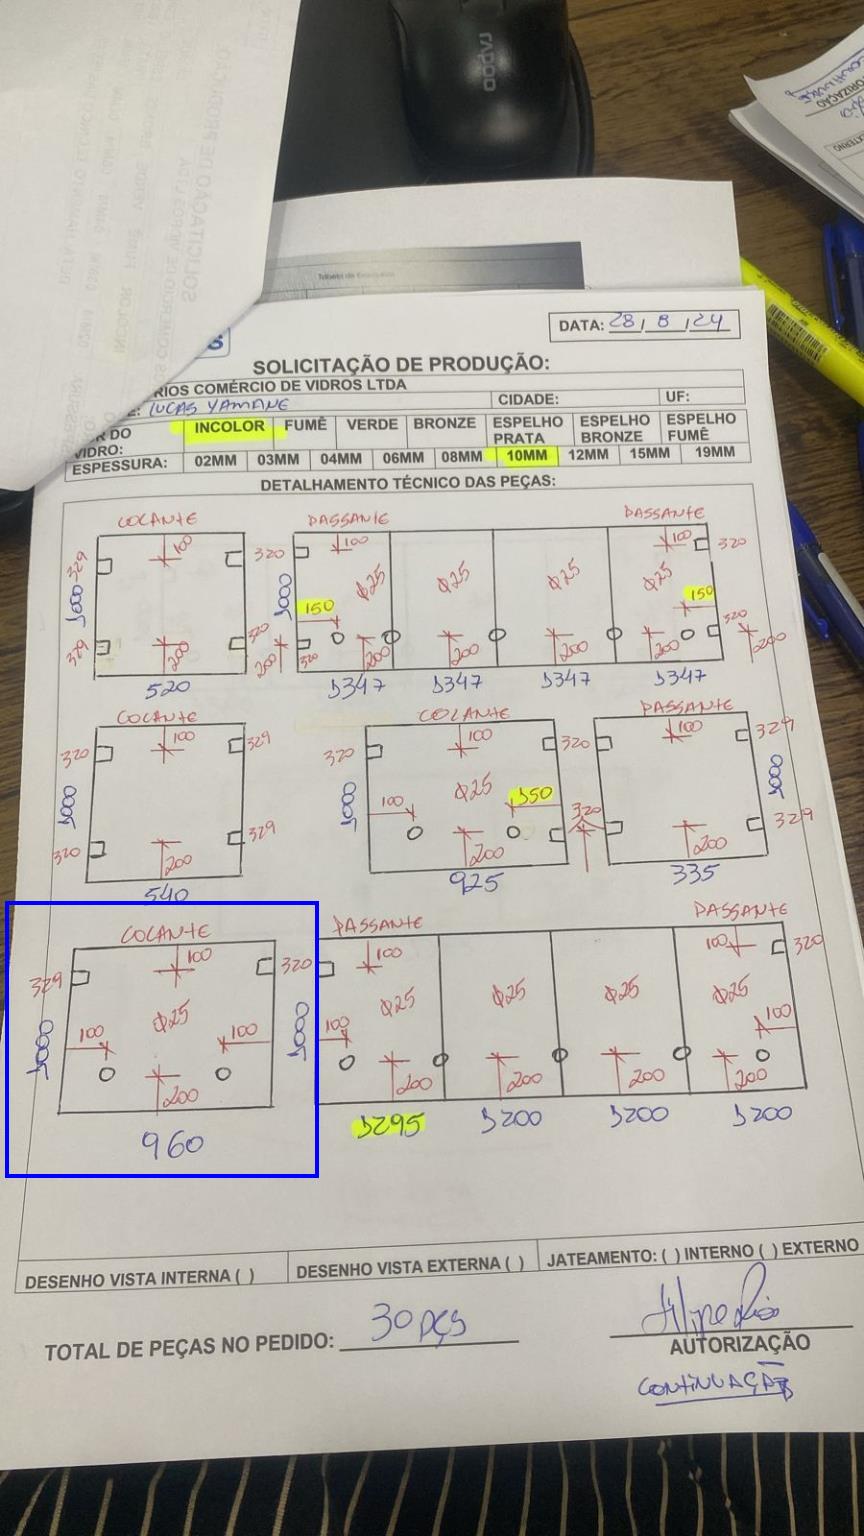 DATA: 28/8/24
SOLICITAÇÃO DE PRODUÇÃO:
RIOS COMÉRCIO DE VIDROS LTDA
LUCAS YAMANE CIDADE: UF:
DO VIDRO: INCOLOR FUMÊ VERDE BRONZE ESPELHO PRATA ESPELHO BRONZE ESPELHO FUMÊ
ESPESSURA: 02MM 03MM 04MM 06MM 08MM 10MM 12MM 15MM 19MM
DETALHAMENTO TÉCNICO DAS PEÇAS:
COLANTE PASSANTE PASSANTE
329 100 320 100 100 320
1000 1000 Φ25 Φ25 Φ25 Φ25
150 150
329 200 320 200 320 200 200 200 200 320 200
520 1347 1347 1347 1347
COLANTE COLANTE PASSANTE
320 100 329 320 100 320 100 329
1000 1000 Φ25 1000
100 150
320 200 329 200 320 200 329
540 925 335
COLANTE PASSANTE PASSANTE
329 100 320 100 100 320
1000 Φ25 1000 Φ25 Φ25 Φ25 Φ25
100 100 100 100
200 200 200 200 200
960 1295 1200 1200 1200
DESENHO VISTA INTERNA ( ) DESENHO VISTA EXTERNA ( ) JATEAMENTO: ( ) INTERNO ( ) EXTERNO
TOTAL DE PEÇAS NO PEDIDO: 30 pçs
AUTORIZAÇÃO
CONTINUAÇÃO